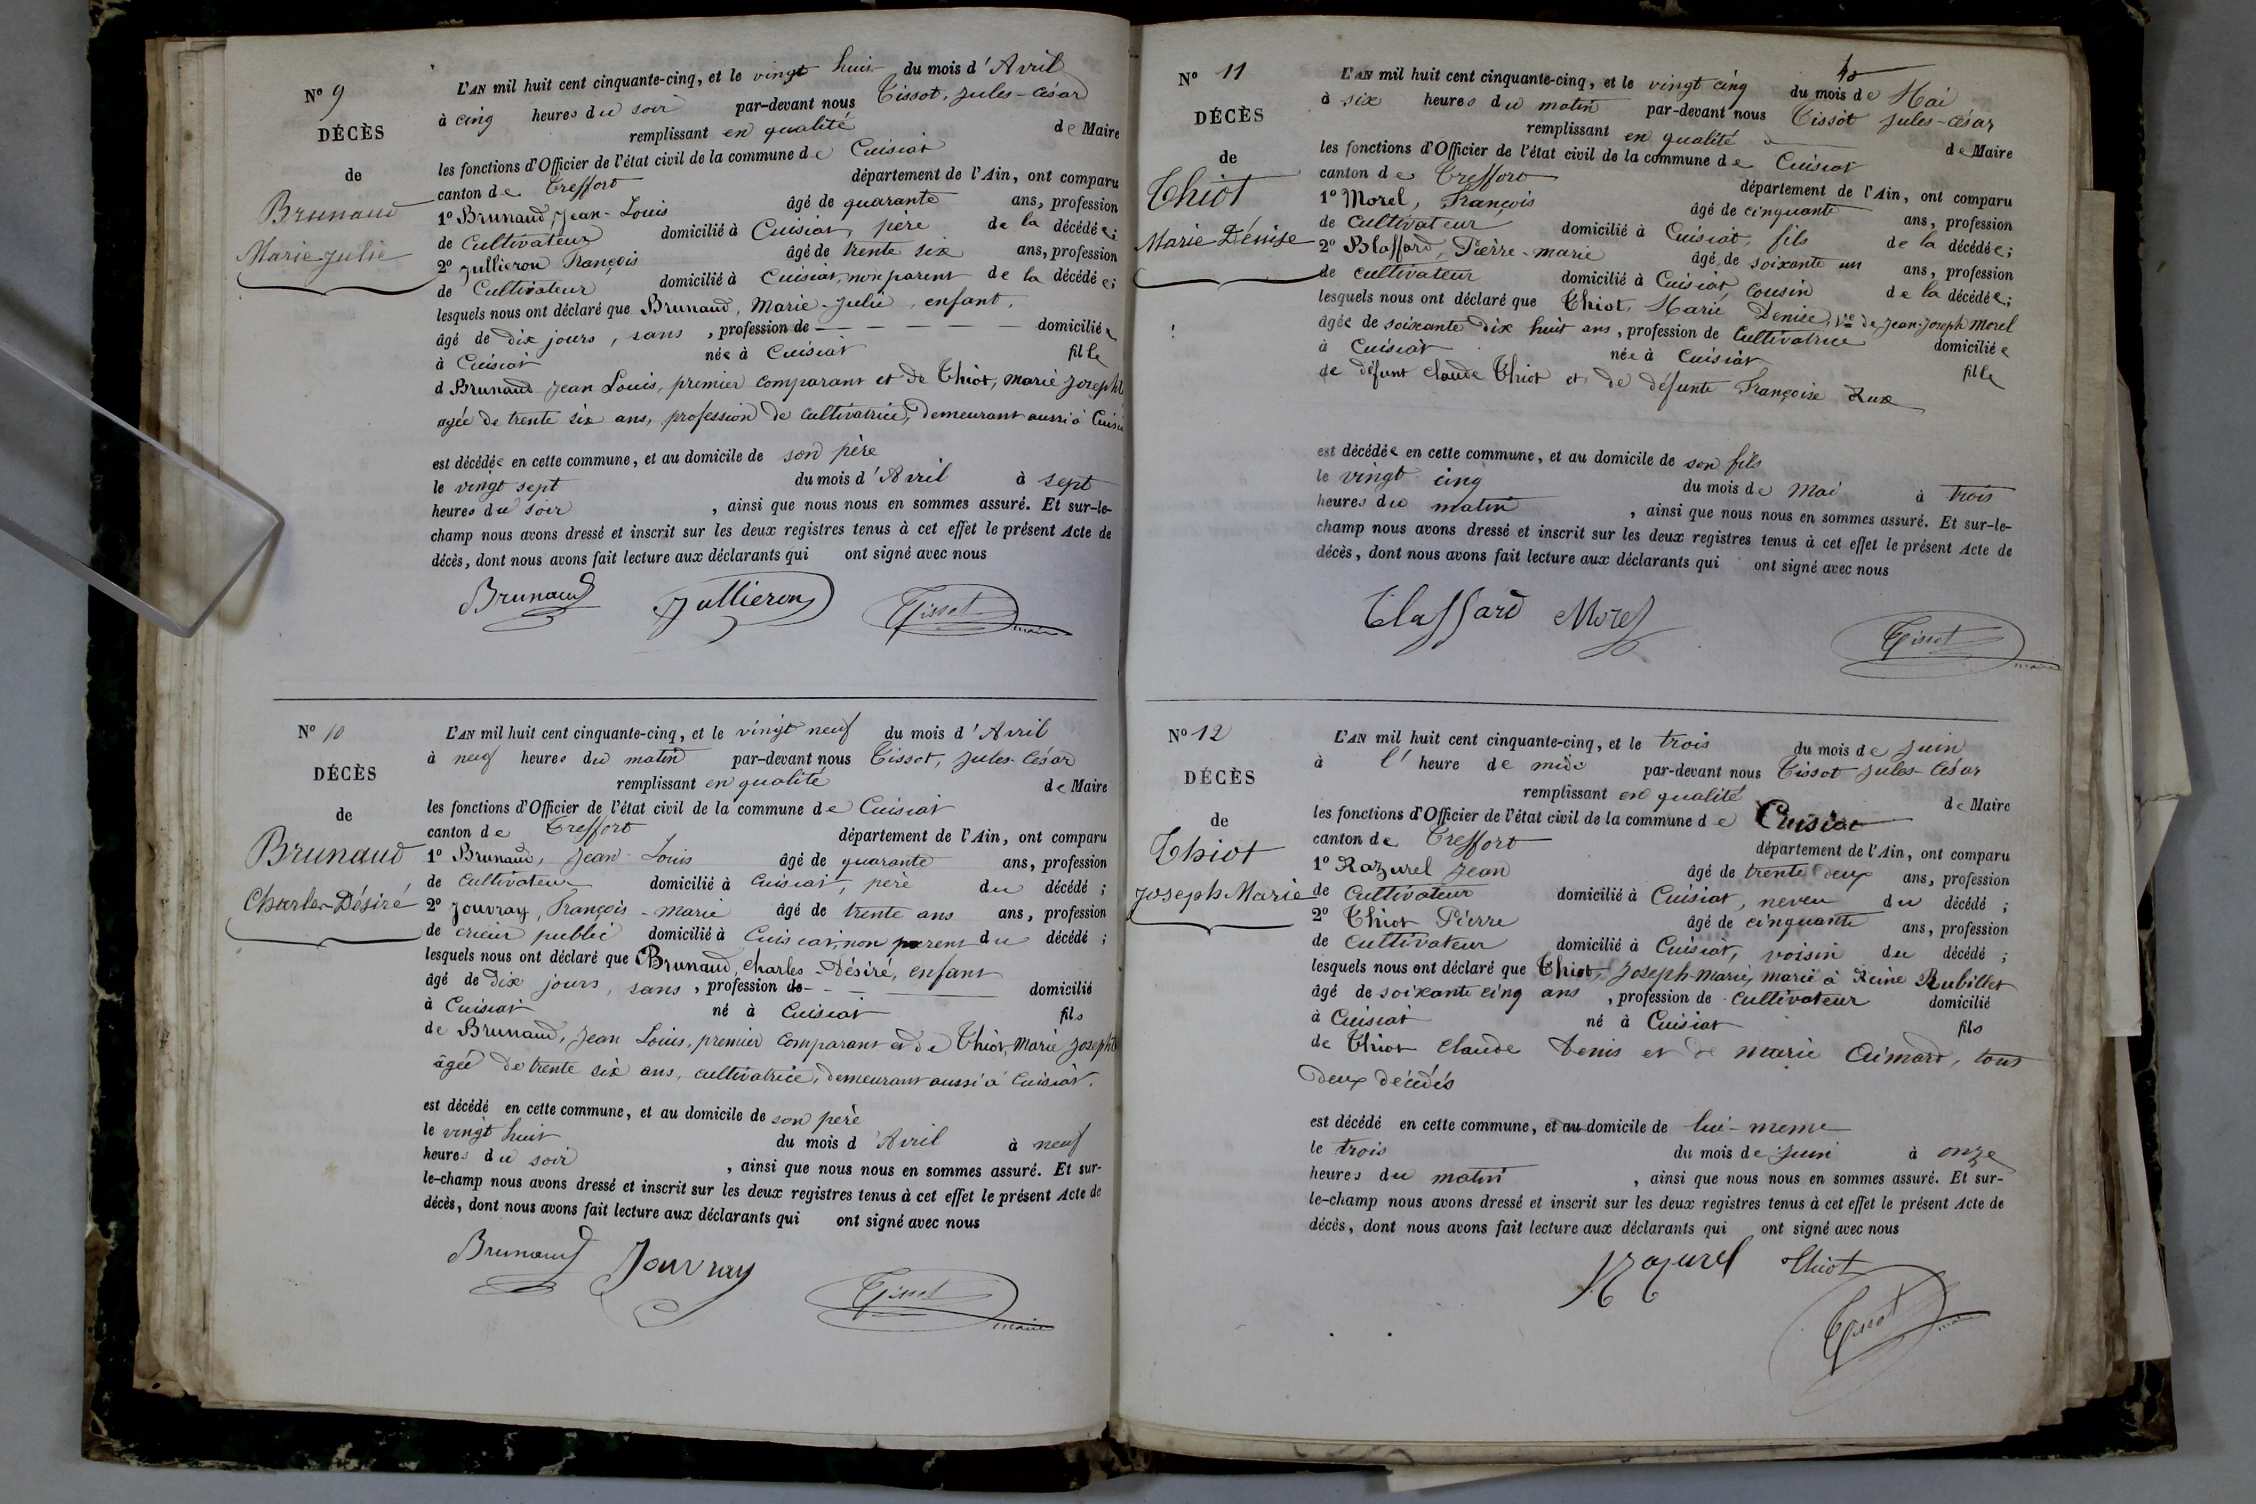 N° 9
DÉCÈS
de
Brunaud
Marie Julie
L'AN mil huit cent cinquante-cinq, et le vingt huit du mois d'Avril
à cinq heures du soir par-devant nous Tissot, Jules-César
remplissant en qualité de Maire
les fonctions d'Officier de l'état civil de la commune de Cuisiat
canton de Treffort département de l'Ain, ont comparu
1° Brunaud, Jean-Louis âgé de quarante ans, profession
de Cultivateur domicilié à Cuisiat, père de la décédée;
2° Jullieron François âgé de trente six ans, profession
de Cultivateur domicilié à Cuisiat, non parent de la décédée;
lesquels nous ont déclaré que Brunaud, Marie-Julie, enfant,
âgé de dix jours, sans, profession de — — — — — domiciliée
à Cuisiat née à Cuisiat fille
d Brunaud Jean Louis, premier comparant et de Thiot, Marie Josephte
agée de trente six ans, profession de cultivatrice, demeurant aussi à Cuisi
est décédée en cette commune, et au domicile de son père
le vingt sept du mois d'Avril à sept
heures du soir, ainsi que nous nous en sommes assuré. Et sur-le-
champ nous avons dressé et inscrit sur les deux registres tenus à cet effet le présent Acte de
décès, dont nous avons fait lecture aux déclarants qui ont signé avec nous
Brunaud Jullieron Tissot maire
N° 10
DÉCÈS
de
Brunaud
Charles-Désiré
L'AN mil huit cent cinquante-cinq, et le vingt neuf du mois d'Avril
à neuf heures du matin par-devant nous Tissot, Jules-César
remplissant en qualité de Maire
les fonctions d'Officier de l'état civil de la commune de Cuisiat
canton de Treffort département de l'Ain, ont comparu
1° Brunaud, Jean-Louis âgé de quarante ans, profession
de Cultivateur domicilié à Cuisiat, père du décédé;
2° Jouvray, François-marie âgé de trente ans ans, profession
de crieur public domicilié à Cuisiat, non parent du décédé;
lesquels nous ont déclaré que Brunaud, Charles-Désiré, enfant
âgé de Dix jours, sans, profession de — — — domicilié
à Cuisiat né à Cuisiat fils
de Brunaud, Jean Louis, premier comparant et de Thiot, Marie Josephte
âgée de trente six ans, cultivatrice, demeurant aussi à Cuisiat.
est décédé en cette commune, et au domicile de son père
le vingt huit du mois d Avril à neuf
heures du soir, ainsi que nous nous en sommes assuré. Et sur-
le-champ nous avons dressé et inscrit sur les deux registres tenus à cet effet le présent Acte de
décès, dont nous avons fait lecture aux déclarants qui ont signé avec nous
Brunaud Jouvray Tissot maire
N° 11
DÉCÈS
de
Thiot
Marie Denise
L'AN mil huit cent cinquante-cinq, et le vingt cinq du mois de Mai
à six heures du matin par-devant nous Tissot Jules-César
remplissant en qualité de Maire
les fonctions d'Officier de l'état civil de la commune de Cuisiat
canton de Treffort département de l'Ain, ont comparu
1° Morel, François âgé de cinquante ans, profession
de cultivateur domicilié à Cuisiat, fils de la décédée;
2° Blaffard, Pierre-marie âgé de soixante un ans, profession
de cultivateur domicilié à Cuisiat cousin de la décédée;
lesquels nous ont déclaré que Thiot, Marie Denise, Vve de Jean-Joseph Morel
âgée de soixante dix huit ans, profession de Cultivatrice domiciliée
à Cuisiat née à Cuisiat fille
de défunt Claude Thiot et de défunte Françoise Rux
est décédée en cette commune, et au domicile de son fils
le vingt cinq du mois de Mai à trois
heures du matin, ainsi que nous nous en sommes assuré. Et sur-le-
champ nous avons dressé et inscrit sur les deux registres tenus à cet effet le présent Acte de
décès, dont nous avons fait lecture aux déclarants qui ont signé avec nous
Blaffard Morel Tissot maire
N° 12
DÉCÈS
de
Thiot
Joseph Marie
L'AN mil huit cent cinquante-cinq, et le trois du mois de Juin
à l'heure de midi par-devant nous Tissot Jules-César
remplissant en qualité de Maire
les fonctions d'Officier de l'état civil de la commune de Cuisiat
canton de Treffort département de l'Ain, ont comparu
1° Razurel Jean âgé de trente deux ans, profession
de Cultivateur domicilié à Cuisiat, neveu du décédé;
2° Thiot Pierre âgé de cinquante ans, profession
de Cultivateur domicilié à Cuisiat, voisin du décédé;
lesquels nous ont déclaré que Thiot, Joseph-Marie, marié à Reine Rubillet
âgé de soixante cinq ans, profession de Cultivateur domicilié
à Cuisiat né à Cuisiat fils
de Thiot Claude Denis et de marie Aimard, tous
deux décédés
est décédé en cette commune, et au domicile de lui-meme
le trois du mois de juin à onze
heures du matin, ainsi que nous nous en sommes assuré. Et sur-
le-champ nous avons dressé et inscrit sur les deux registres tenus à cet effet le présent Acte de
décès, dont nous avons fait lecture aux déclarants qui ont signé avec nous
Razurel Thiot
Tissot maire